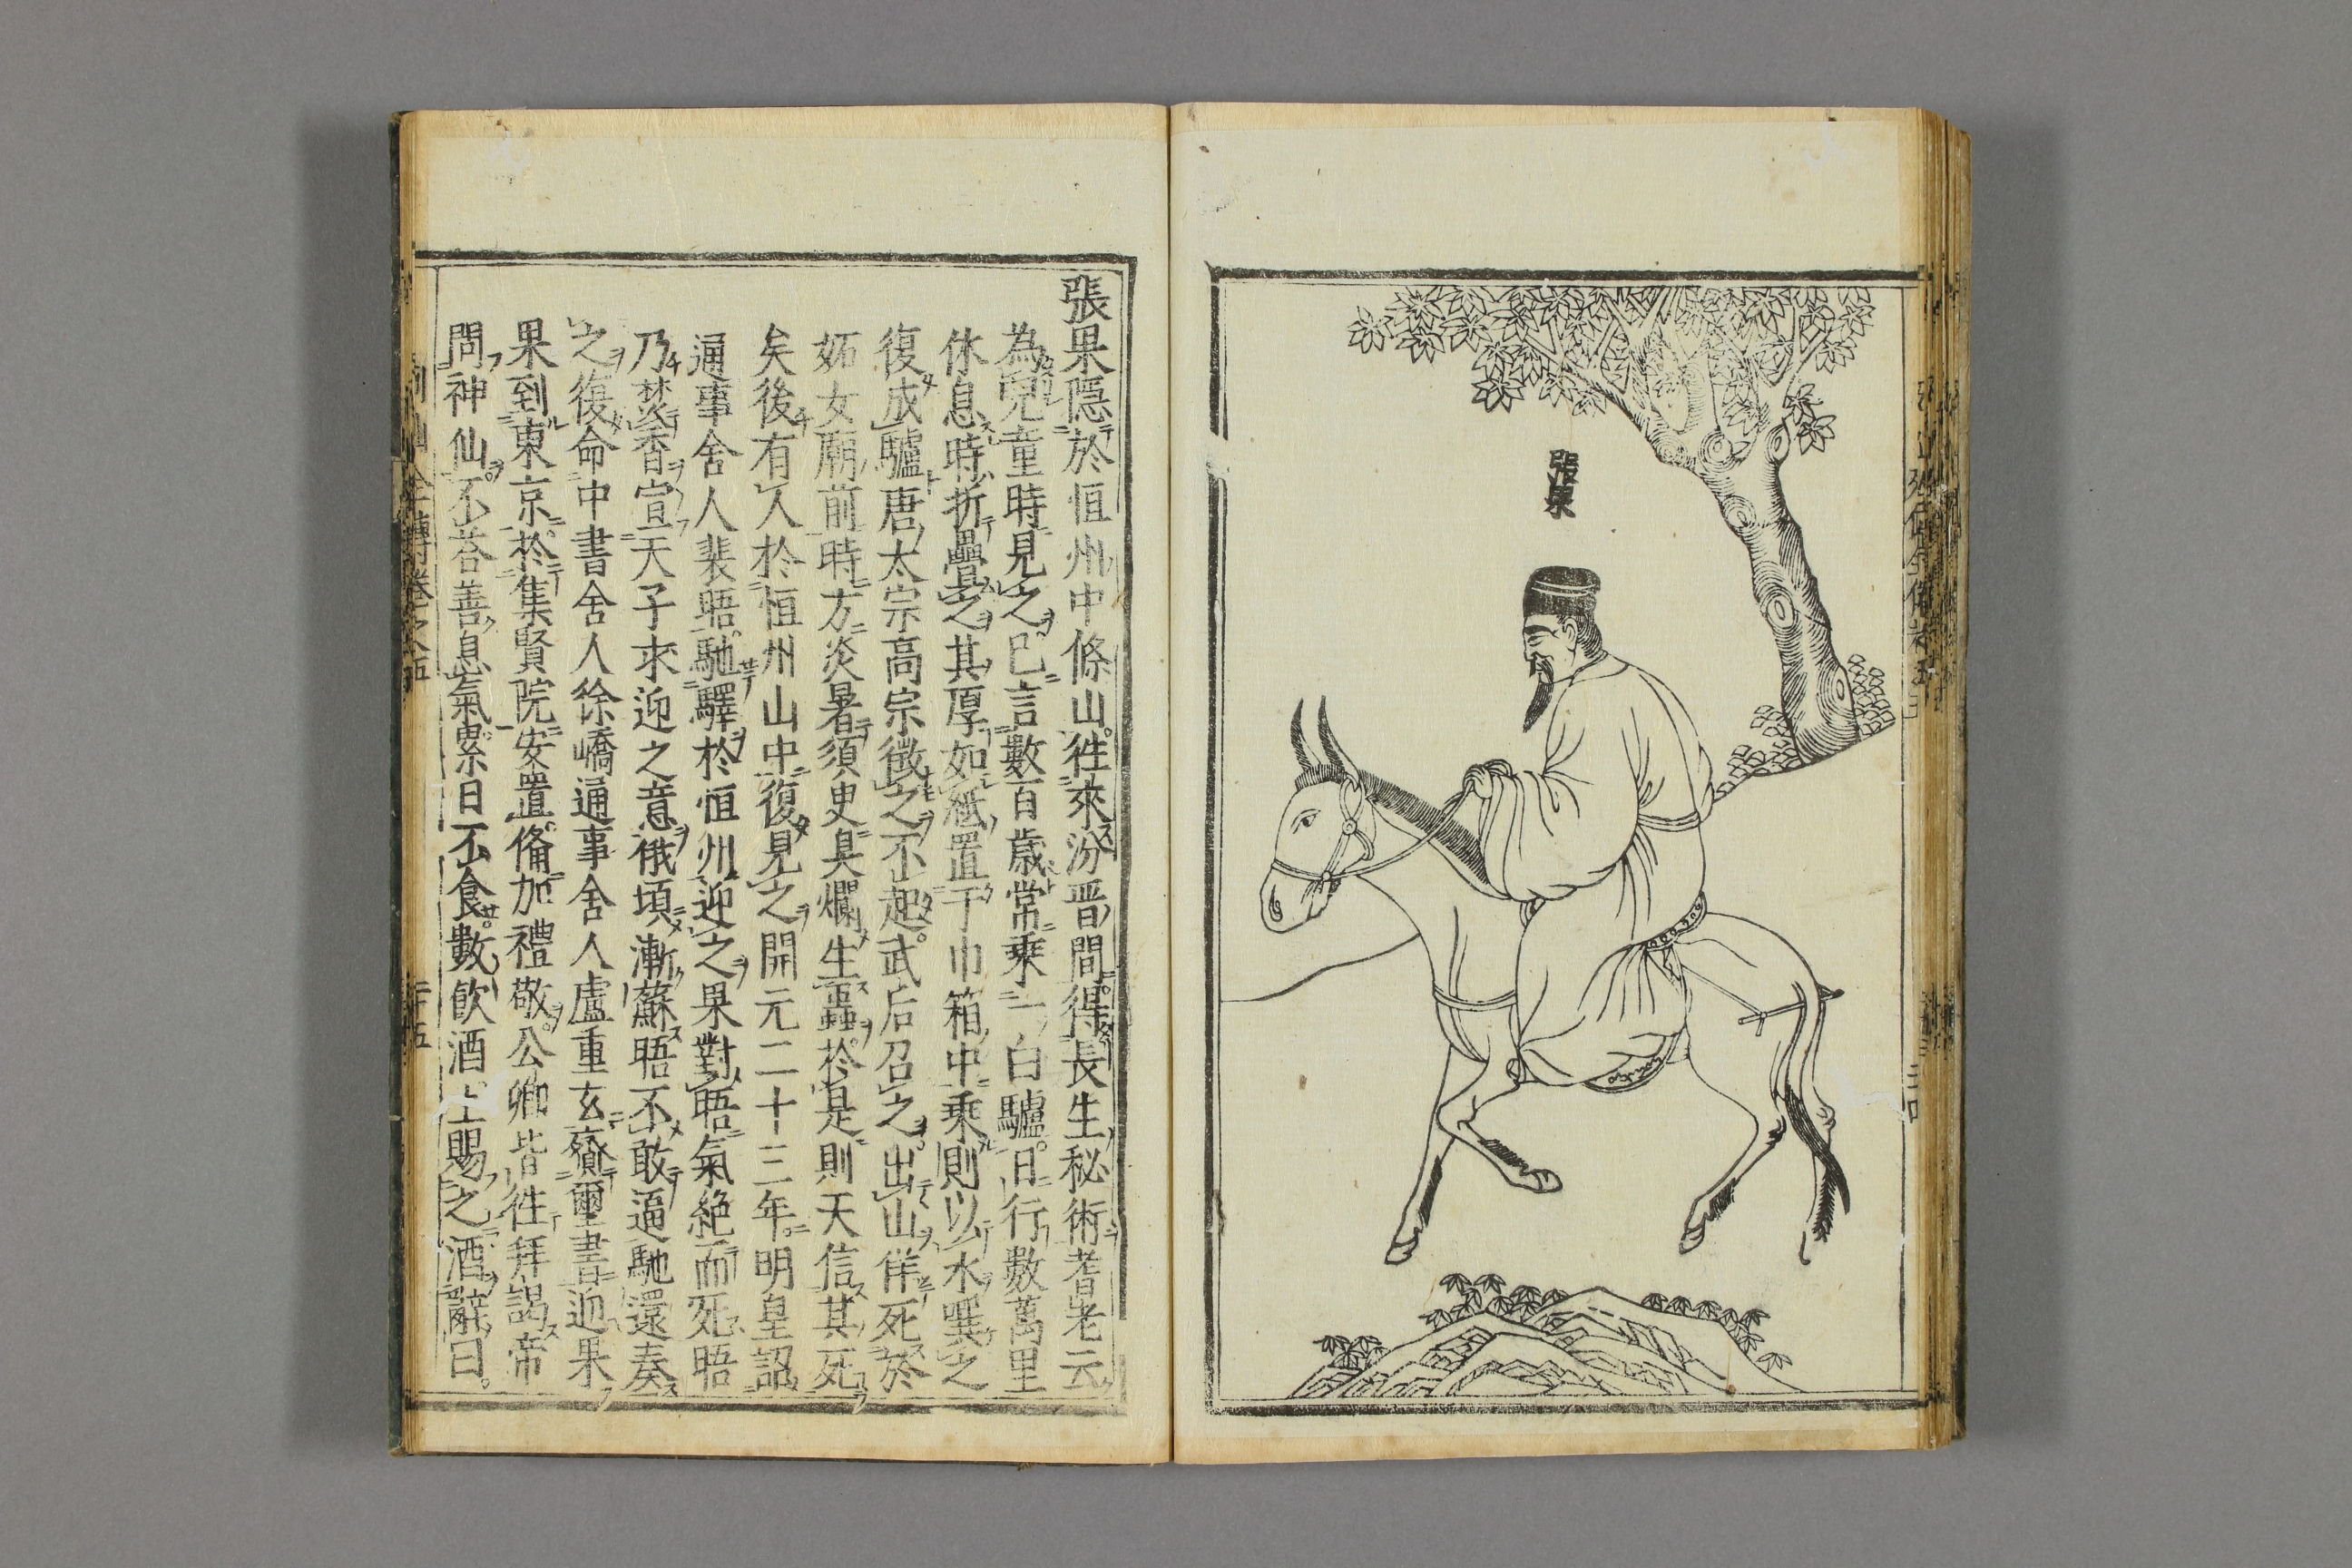 張果
張果隱於恒州中條山。徃來汾晋間。得長生秘術耆老云
為兒童時見之巳言數百歳常乗一白驢。日行數萬里
休息時折疊之其厚如紙置于巾箱中乗則以水噀之
復成驢唐太宗高宗徴之不起。武后召之。出山佯死於
妬女廟前時方炎暑須臾臭爛生蟲。於是則天信其死
矣後有人於恒州山中復見之開元二十三年。明皇詔
通事舍人裴晤。馳驛於恒州迎之果對晤氣絶而死晤
乃焚香宣天子求迎之意俄頃漸蘇晤不敢逼馳還奏
之復命中書舍人徐嶠通事舍人盧重玄齎璽書迎果
果到東京。於集賢院安置。僃加禮敬。公卿皆徃拜謁帝
問神仙。不荅善息氣。累日不食。數飲酒上賜之酒辭曰。
列仙全傳卷之五
二十五